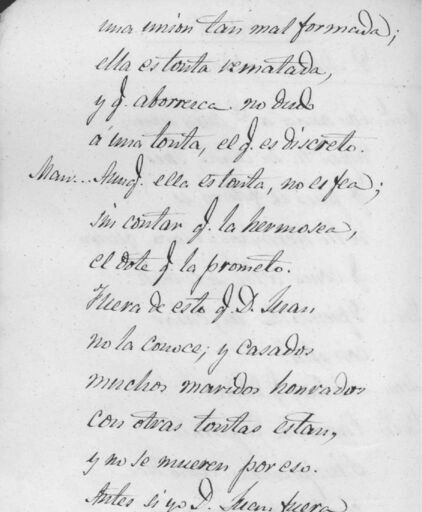 una union tan mal formada;
ella es tonta rematada,
y q. aborrezca no dudo
á una tonta, el q. es discreto.
Man... Aunq. ella es tonta, no es fea;
sin contar q. la hermosea,
el dote q. la prometo.
Fuera de esto q. D. Juan
no la conoce; y casados
muchos maridos honrados
con otras tontas estan,
y no se mueren por eso.
Antes si yo D. Juan fuera